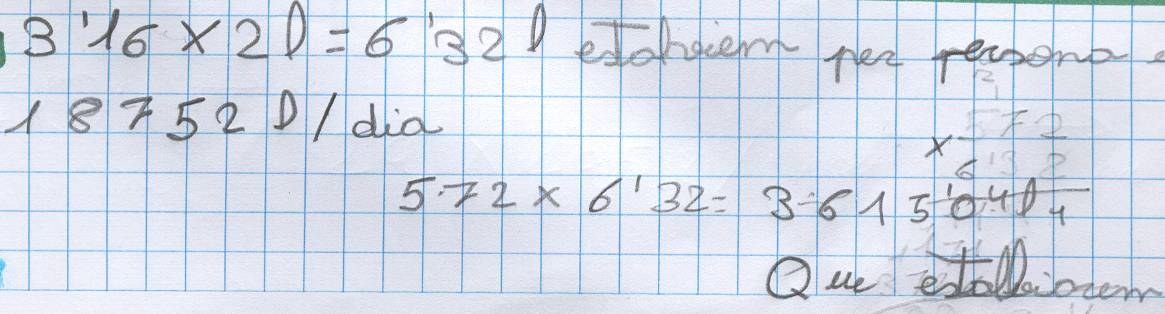 3'16 x 2l = 6'32 l estalviem per persona
18752 l / dia
572
x 6'32
572 x 6'32 = 3615'04 l
Que estalviarem